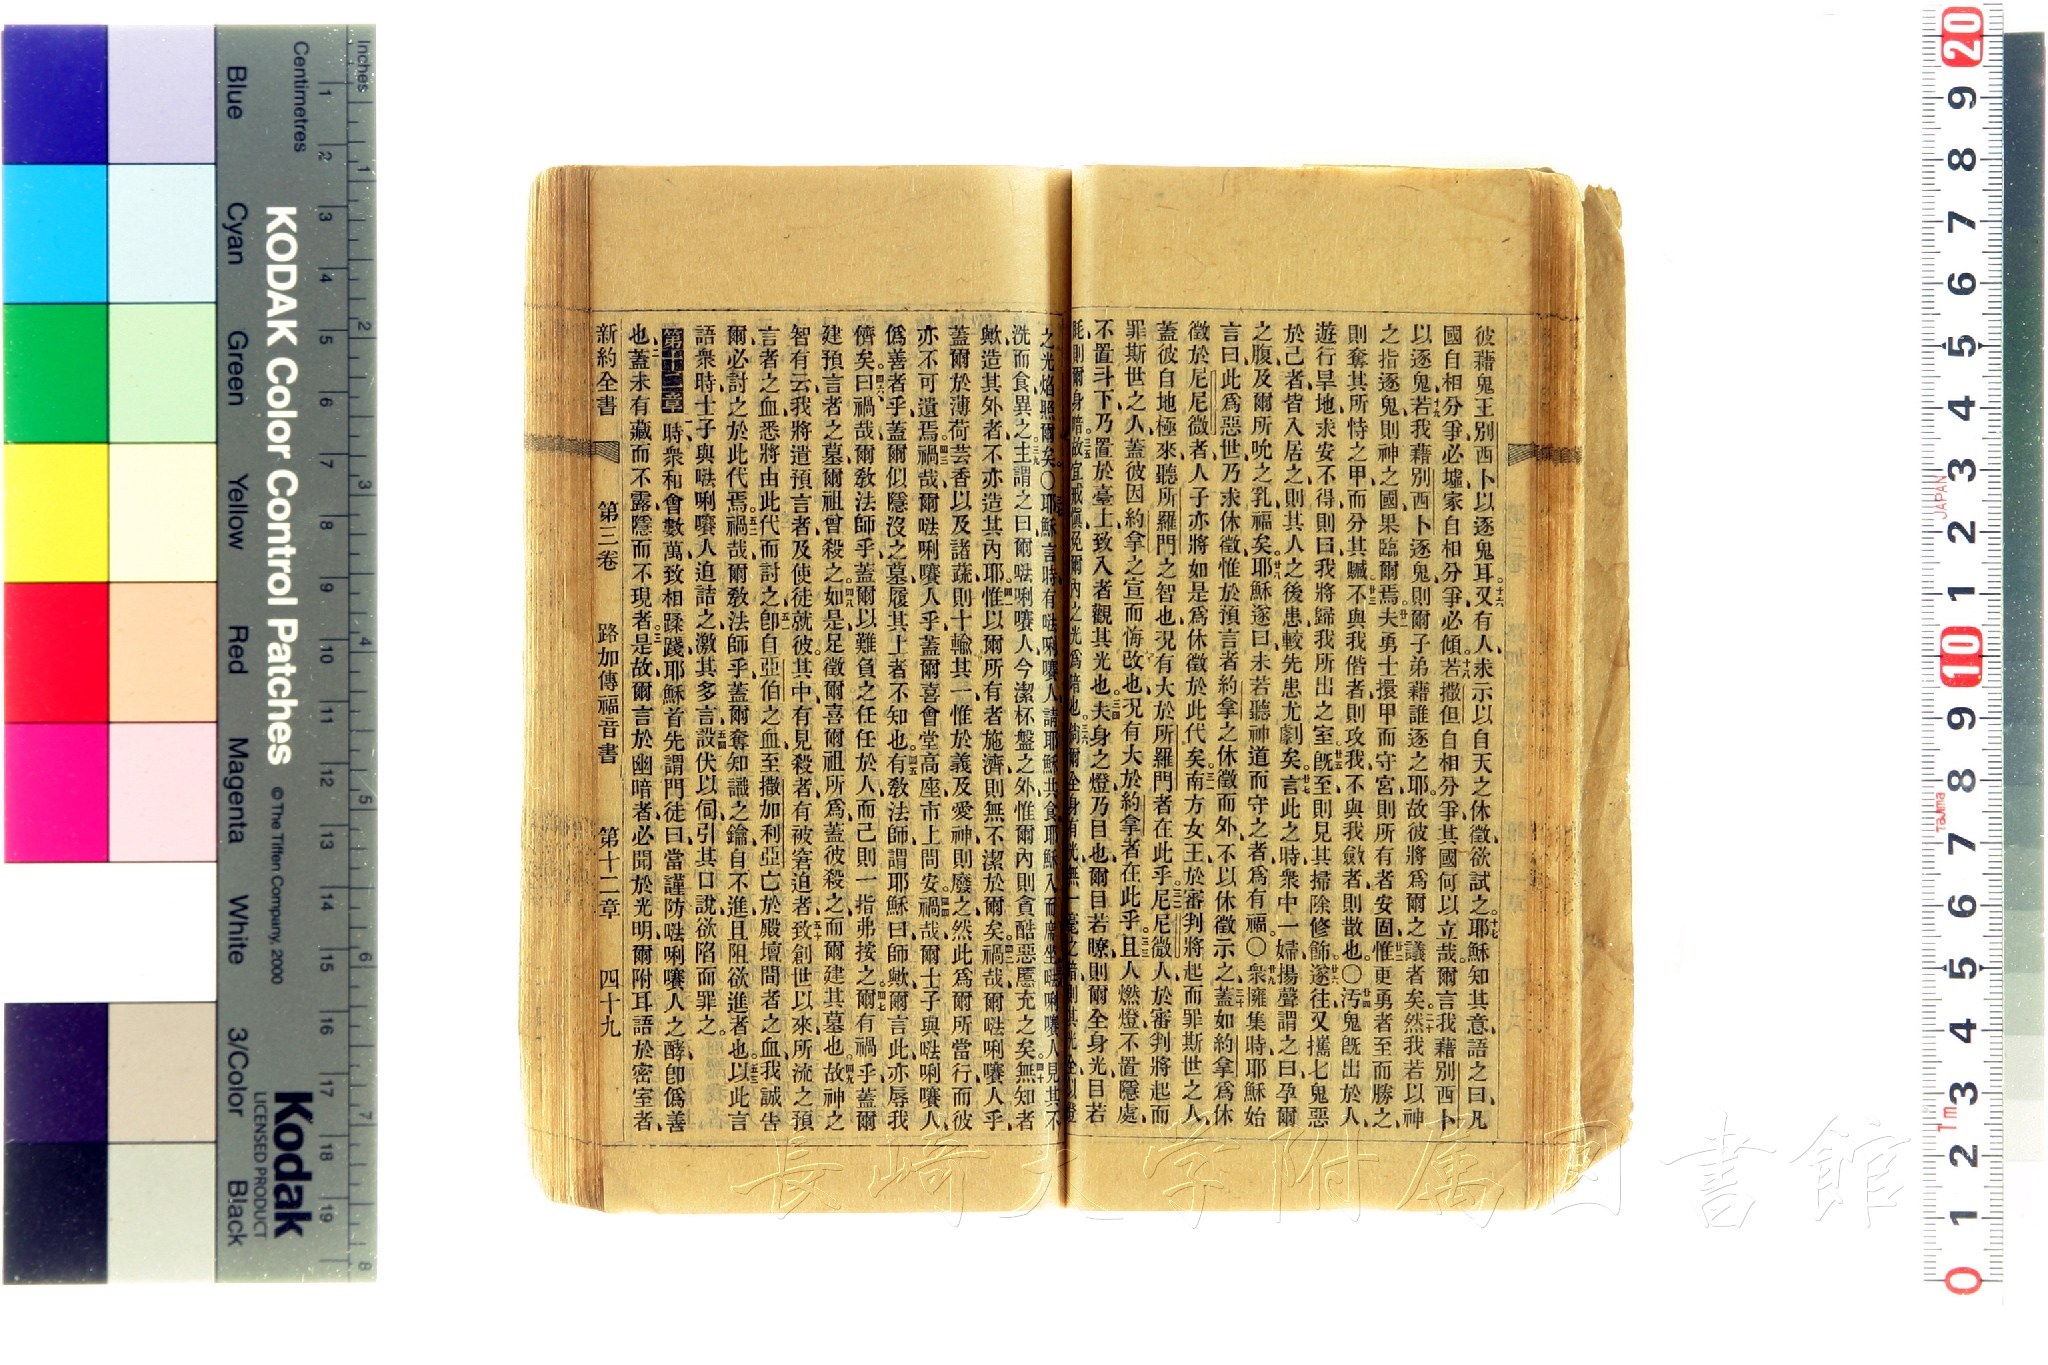 彼藉鬼王別西卜以逐鬼耳又有人求示以自天之休徵欲試之耶穌知其意語之曰凡
國自相分爭必墟家自相分爭必傾若撒但自相分爭其國何以立哉爾言我藉別西卜
以逐鬼若我藉別西卜逐鬼則爾子弟藉誰逐之耶故彼將爲爾之議者矣然我若以神
之指逐鬼則神之國果臨爾焉夫勇士擐甲而守宮則所有者安固惟更勇者至而勝之
則奪其所恃之甲而分其贓不與我偕者則攻我不與我斂者則散也〇汚鬼旣出於人
遊行旱地求安不得則曰我將歸我所出之室旣至則見其掃除修飾遂往又攜七鬼惡
於己者皆入居之則其人之後患較先患尤劇矣言此之時衆中一婦揚聲謂之曰孕爾
之腹及爾所吮之乳福矣耶穌遂曰未若聽神道而守之者爲有福〇衆雍集時耶穌始
言曰此爲惡世乃求休徵惟於預言者約拿之休徵而外不以休徵示之蓋如約拿爲休
徵於尼尼微者人子亦將如是爲休徵於此代矣南方女王於審判將起而罪斯世之人
蓋彼自地極來聽所羅門之智也況有大於所羅門者在此乎尼尼微人於審判將起而
罪斯世之人蓋彼因約拿之宣而悔改也況有大於約拿者在此乎且人燃燈不置隱處
不置斗下乃置於臺上致入者觀其光也夫身之燈乃目也爾目若瞭則爾全身光目若
眊則爾身暗故宜戒愼免爾內之光爲暗也倘爾全身有光無一毫之暗則其光全似燈
之光焰照爾矣〇耶穌言時有𠵽唎嚽人請耶穌共食耶穌入而席坐𠵽唎嚽人見其不
洗而食異之主謂之曰爾𠵽唎嚽人今潔杯盤之外惟爾內則貪酷惡慝充之矣無知者
歟造其外者不亦造其內耶惟以爾所有者施濟則無不潔於爾矣禍哉爾𠵽唎嚽人乎
蓋爾於薄荷芸香以及諸蔬則十輸其一惟於義及愛神則廢之然此爲爾所當行而彼
亦不可遺焉禍哉爾𠵽唎嚽人乎蓋爾喜會堂高座市上問安禍哉爾士子與𠵽唎嚽人
僞善者乎蓋爾似隱沒之墓履其上者不知也有敎法師謂耶穌曰師歟爾言此亦辱我
儕矣曰禍哉爾敎法師乎蓋爾以難負之任任於人而己則一指弗按之爾有禍乎蓋爾
建預言者之墓爾祖曾殺之如是足徵爾喜爾祖所爲蓋彼殺之而爾建其墓也故神之
智有云我將遣預言者及使徒就彼其中有見殺者有被窘迫者致創世以來所流之預
言者之血悉將由此代而討之卽自亞伯之血至撒加利亞亡於殿壇間者之血我誠告
爾必討之於此代焉禍哉爾敎法師乎蓋爾奪知識之鑰自不進且阻欲進者也以此言
語衆時士子與𠵽唎嚽人迫詰之激其多言設伏以伺引其口說欲陷而罪之
第十二章 時衆和會數萬致相蹂踐耶穌首先謂門徒曰當謹防𠵽唎嚽人之酵卽僞善
也蓋未有藏而不露隱而不現者是故爾言於幽暗者必聞於光明爾附耳語於密室者
新約全書 第三卷 路加傳福音書 第十二章 四十九
長崎大学附属図書館
KODAK Color Control Patches
© The Tiffen Company, 2000
Kodak
LICENSED PRODUCT
Inches
Centimetres
Blue
Cyan
Green
Yellow
Red
Magenta
White
3/Color
Black
JAPAN
Tajima